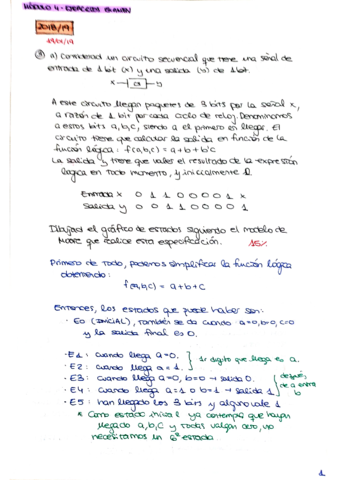 MÓDULO 4 - EJERCICIOS EXAMEN
2018/19
19/01/19
③ a) Considerad un circuito secuencial que tiene una señal de
entrada de 1 bit (x) y una salida (y) de 1 bit.
x CS y
A este circuito llegan paquetes de 3 bits por la señal x,
a razón de 1 bit por cada ciclo de reloj. Denominamos
a estos bits a,b,c, siendo a el primero en llegar. El
circuito tiene que calcular la salida en función de la
función lógica: f(a,b,c) = a + b + b'c
La salida y tiene que valer el resultado de la expresión
lógica en todo momento, y inicialmente 0.
Entrada x 0 1 1 0 0 0 0 1 x
Salida y 0 0 1 1 0 0 0 0 1
Dibujad el gráfico de estados siguiendo el modelo de
Moore que realice esta especificación. 15%
Primero de todo, podemos simplificar la función lógica
obteniendo:
f(a,b,c) = a + b + c
Entonces, los estados que puede haber son:
· E0 (INICIAL), también se da cuando a=0, b=0, c=0
y la salida final es 0.
· E1: cuando llega a=0.
· E2: cuando llega a=1.
1r dígito que llega es a.
· E3: cuando llega a=0, b=0 → salida 0
· E4: cuando llega a=1 o b=1 → salida 1
después, de a entra b
· E5: han llegado los 3 bits y alguno vale 1
* Como estado inicial ya contempla que hayan
llegado a,b,c y todas valgan cero, no
necesitamos un 6º estado.
1